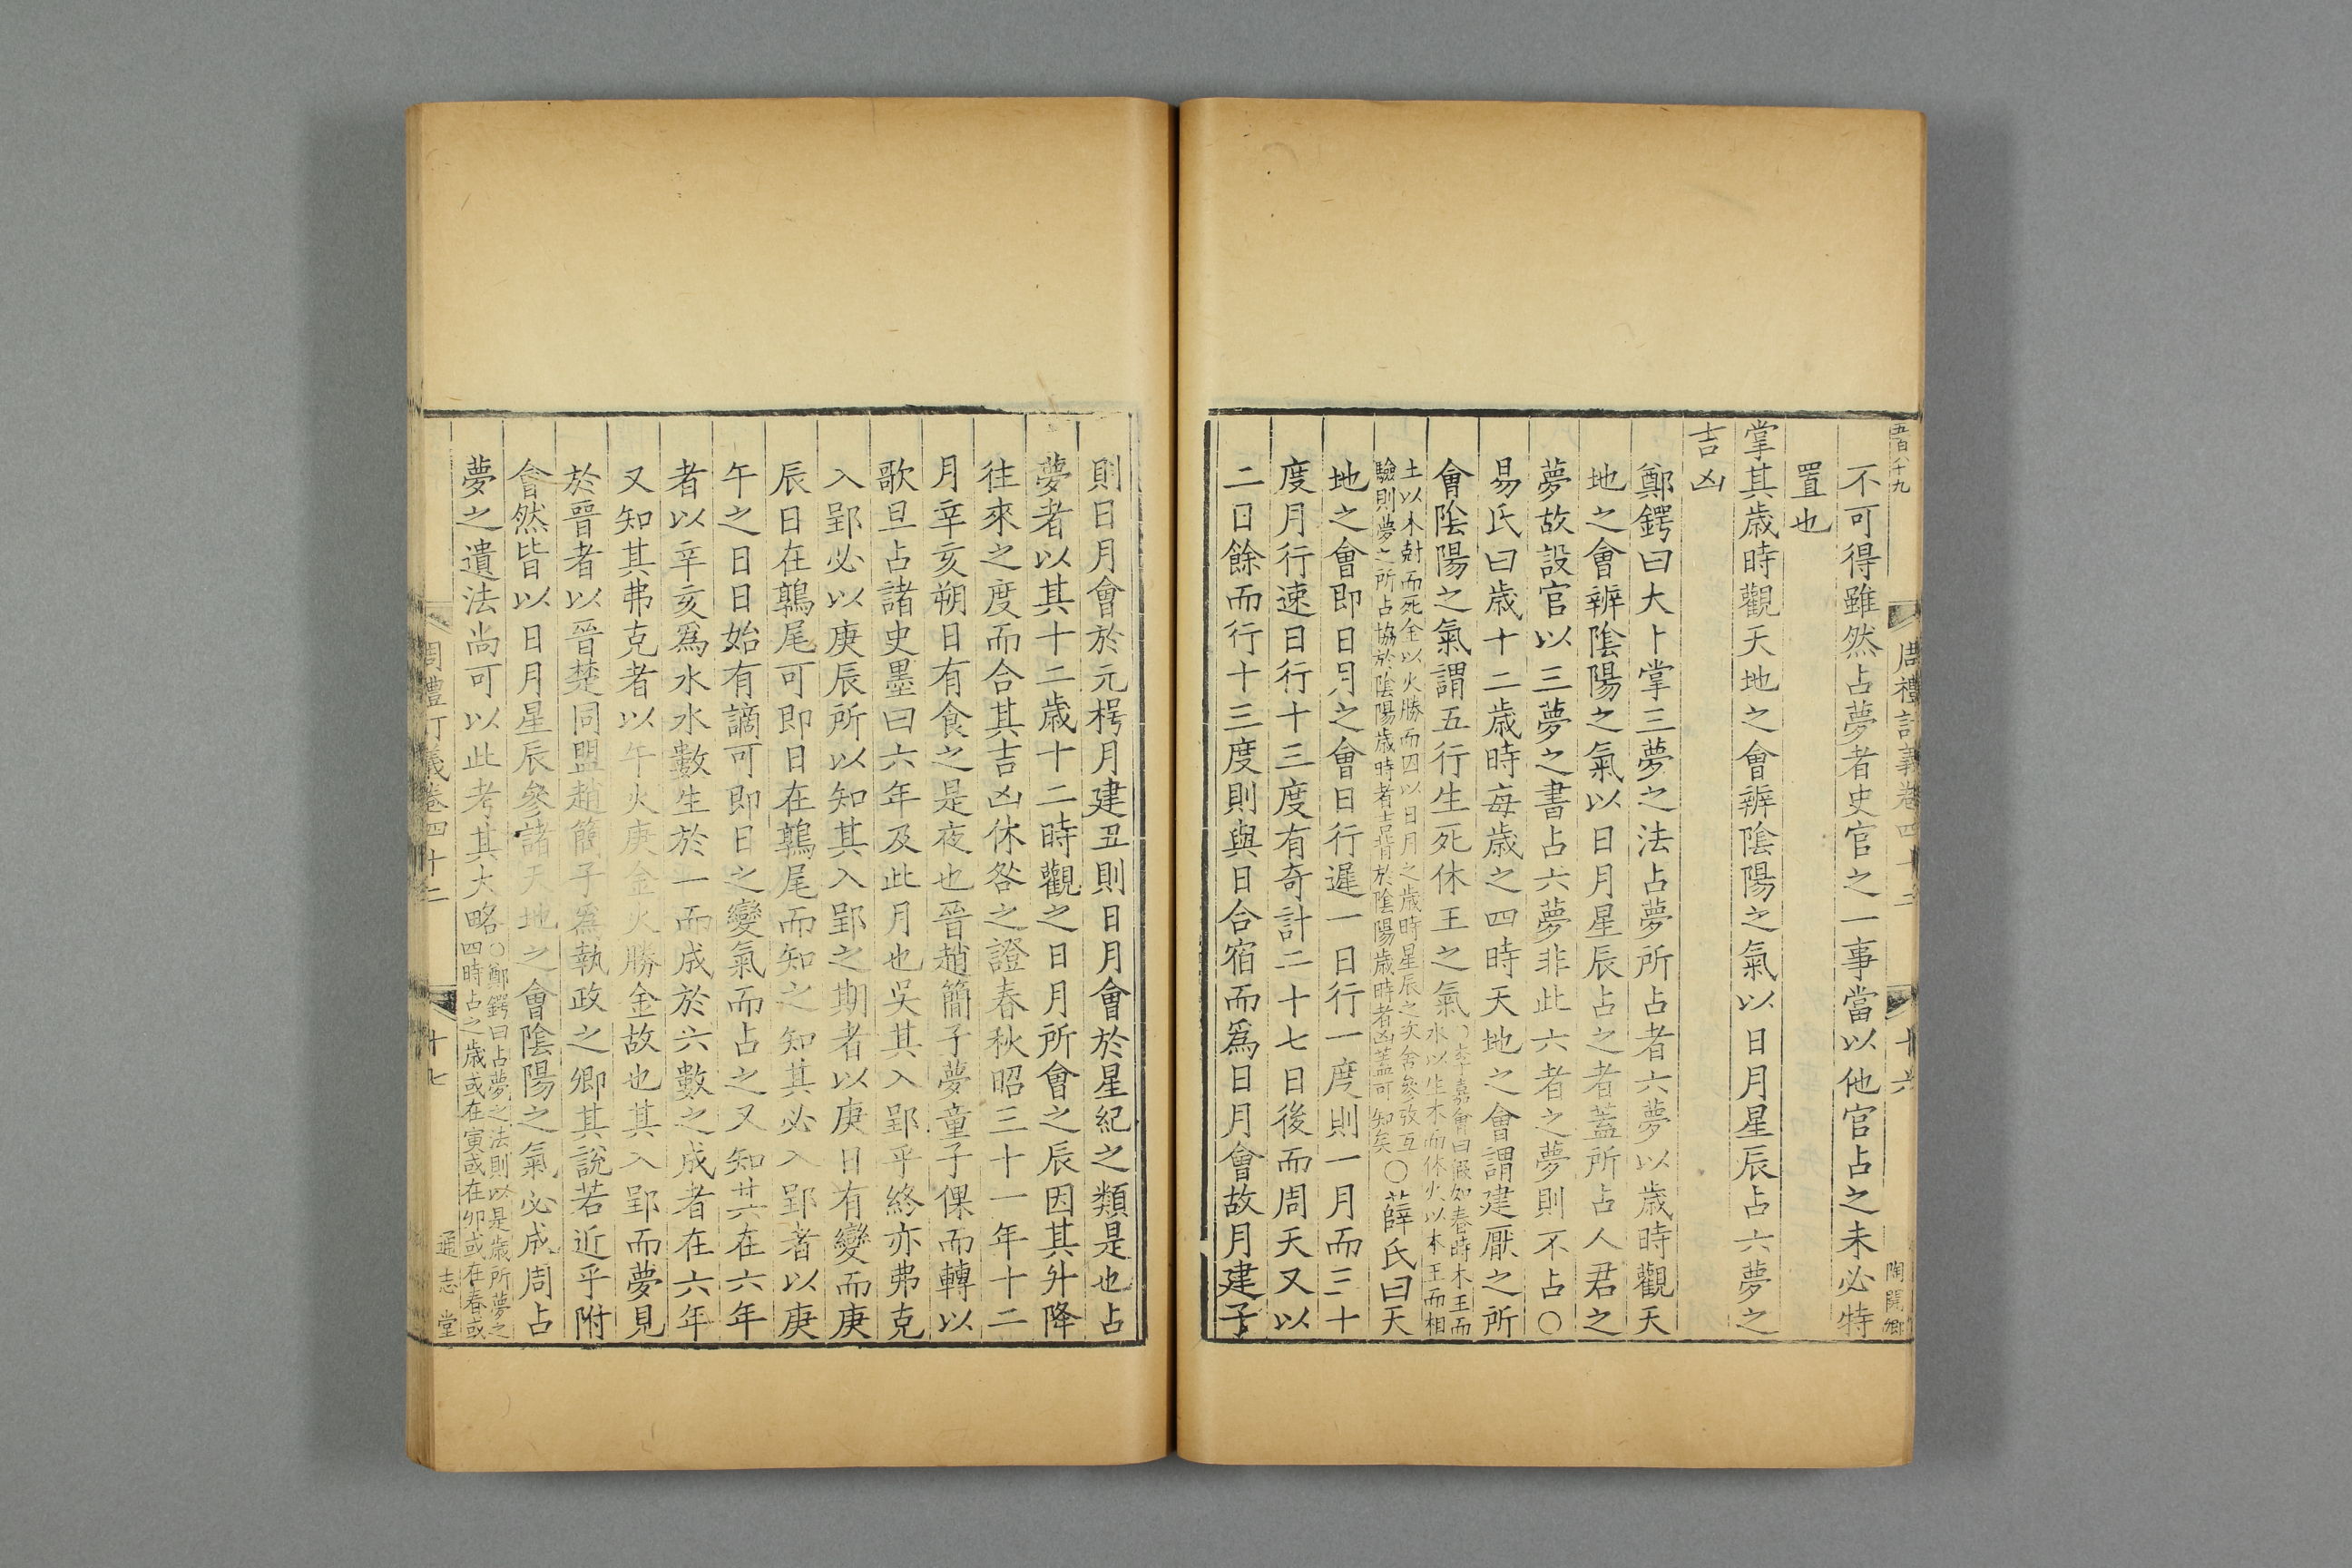 五百八十九
周禮訂義卷四十二
十六
陶開鄉
不可得雖然占夢者史官之一事當以他官占之未必特
置也
掌其歳時觀天地之會辨陰陽之氣以日月星辰占六夢之
吉凶
鄭鍔曰大卜掌三夢之法占夢所占者六夢以歳時觀天
地之會辨陰陽之氣以日月星辰占之者蓋所占人君之
夢故設官以三夢之書占六夢非此六者之夢則不占〇
易氏曰歳十二歳時每歳之四時天地之會謂建厭之所
會陰陽之氣謂五行生死休王之氣〇李嘉會曰假如春時木王而
水以生木而休火以木王而相
土以木尅而死金以火勝而囚以日月之歳時星辰之次舍參攷互
驗則夢之所占協於陰陽歳時者吉背於陰陽歳時者凶蓋可知矣〇薛氏曰天
地之會即日月之會日行遲一日行一度則一月而三十
度月行速日行十三度有奇計二十七日後而周天又以
二日餘而行十三度則與日合宿而爲日月會故月建子
則日月會於元枵月建丑則日月會於星紀之類是也占
夢者以其十二歳十二時觀之日月所會之辰因其升降
往來之度而合其吉凶休咎之證春秋昭三十一年十二
月辛亥朔日有食之是夜也晉趙簡子夢童子倮而轉以
歌旦占諸史墨曰六年及此月也吳其入郢乎終亦弗克
入郢必以庚辰所以知其入郢之期者以庚日有變而庚
辰日在鶉尾可即日在鶉尾而知之知其必入郢者以庚
午之日日始有謫可即日之變氣而占之又知其在六年
者以辛亥爲水水數生於一而成於六數之成者在六年
又知其弗克者以午火庚金火勝金故也其入郢而夢見
於晉者以晉楚同盟趙簡子爲執政之卿其說若近乎附
會然皆以日月星辰參諸天地之會陰陽之氣必成周占
夢之遺法尚可以此考其大略〇鄭鍔曰占夢之法則以是歳所夢之
四時占之歳或在寅或在卯或在春或
周禮訂義卷四十二
十七
通志堂